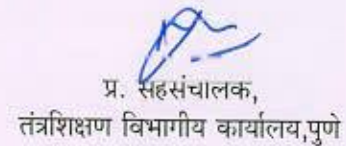 प्र. सहसंचालक,
तंत्रशिक्षण विभागीय कार्यालय,पुणे